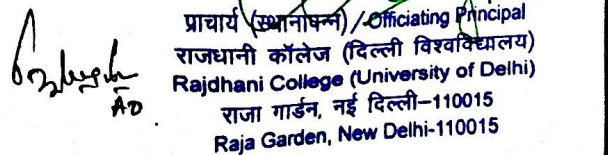 प्राचार्य (स्थानापन्न) / Officiating Principal
राजधानी कॉलेज (दिल्ली विश्वविद्यालय)
Rajdhani College (University of Delhi)
राजा गार्डन, नई दिल्ली-110015
Raja Garden, New Delhi-110015
AO